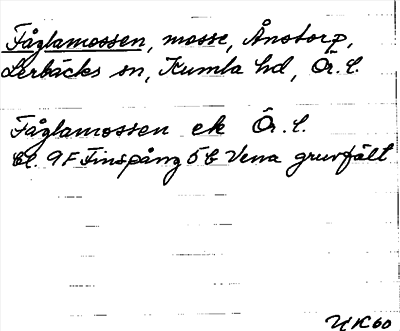 Fåglamossen, mosse, Ånstorp,
Lerbäcks sn, Kumla hd, Ör. l.
Fåglamossen ek Ör. l.
bl. 9F Finspång 5 b Vena gruvfält